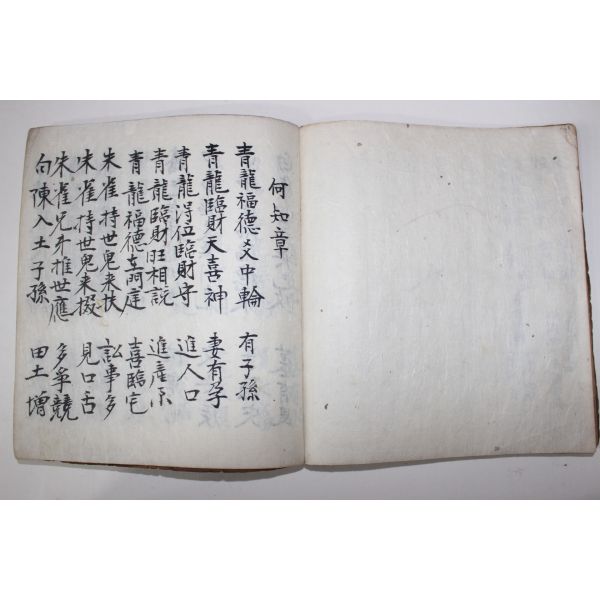 何知章
青龍福德爻中輪 有子孫
青龍臨財天喜神 妻有孕
青龍得位臨財守 進人口
青龍臨財旺相説 進產不
青龍福德在門庭 喜臨宅
朱雀持世鬼来扶 訟事多
朱雀持世鬼来掇 見口舌
朱雀兄弟推世應 多爭競
勾陳入土子孫 田土增